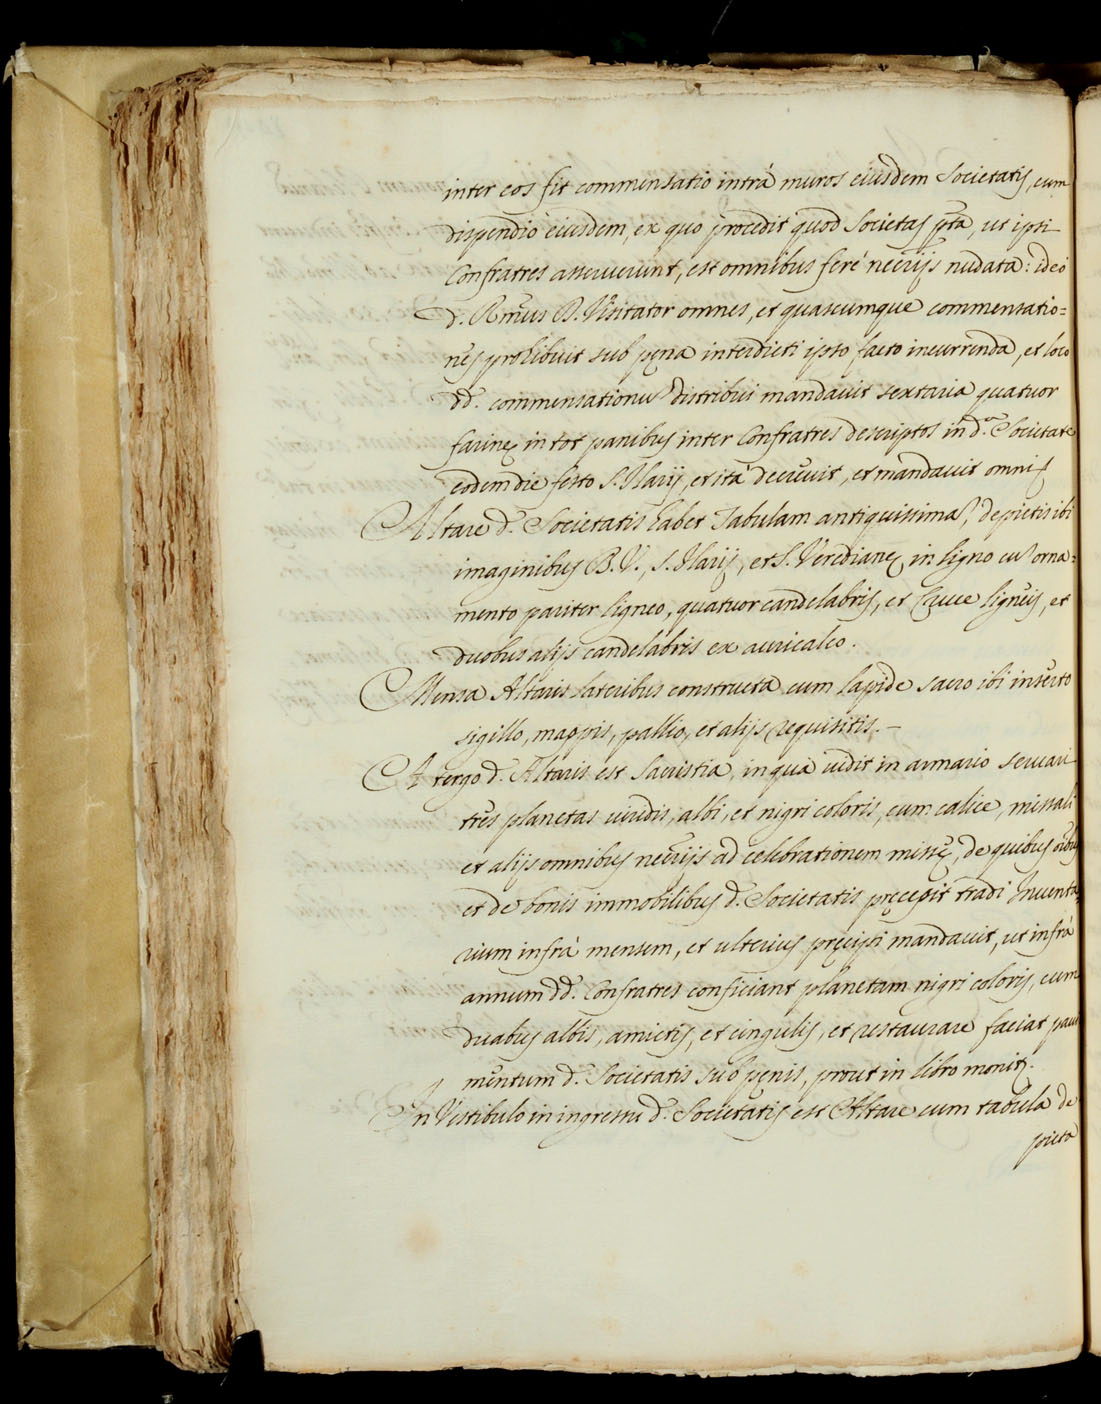 inter eos fit commensatio intrà muros eiusdem Societatis, cum
dispendio eiusdem, ex quo procedit quod Societas pta, ut ipsi
Confratres asseruerunt, est omnibus ferè necrijs nudata: ideò
d. Rmus D. Visitator omnes, et quascumque commensatio=
nes prohibuit sub pęna interdicti ipso facto incurrenda, et loco
dd. commensationu distribui mandavit sextaria quatuor
farinę in tot panibus inter Confratres descriptos in d.a Societate
eodem die festo S. Ilarij, et ità decrevit, et mandavit omni
Altare d. Societatis habet Tabulam antiquissima, depictis ibi
imaginibus B.V., S. Ilarij, et S. Veredianę in ligno cu orna=
mento pariter ligneo, quatuor candelabris, et Cruce ligneis, et
duobus alijs candelabris ex auricalco.
Mensa Altaris lateribus constructa cum lapide sacro ibi inserto
sigillo, mappis, pallio, et alijs requisitis.-
A tergo d. Altaris est Sacristia, in qua vidit in armario servari
tres planetas viridis, albi, et nigri coloris, cum calice, missali
et alijs omnibus necrijs ad celebrationem missę, de quibus oibus
et de bonis immobilibus d. Societatis pręcepit tradi Inventa
rium infrà mensem, et ulterius pręcipi mandavit, ut infrà
annum dd. Confratres conficiant planetam nigri coloris, cum
duabus albis, amictis, et cingulis, et restaurare faciat pavi
mentum d. Societatis sub pęnis, prout in libro monit.
In Vestibulo in ingressu d. Societatis est Altare cum tabula de
picta